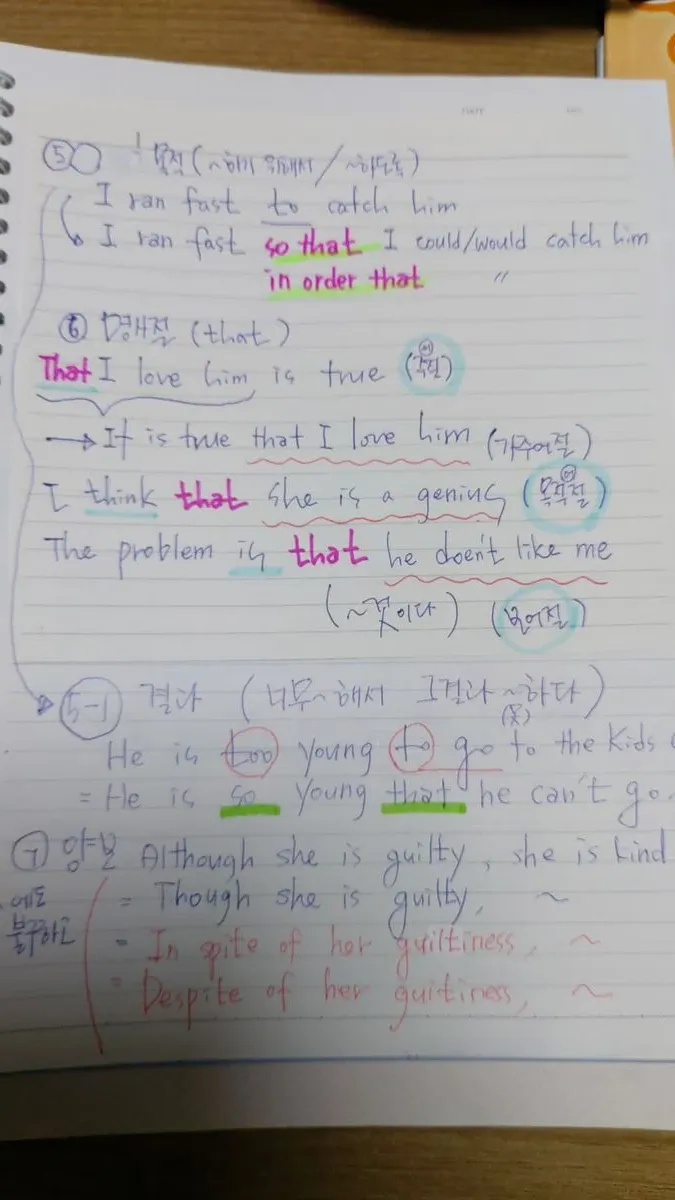 ⑤ 목적(~하기 위해서/~하도록)
I ran fast to catch him
I ran fast so that I could/would catch him
in order that 〃
⑥ 명사절 (that)
That I love him is true (주어절)
→ It is true that I love him (가주어절)
I think that she is a genius (목적어절)
The problem is that he doen't like me
(~것이다) (보어절)
5-1 결과 (너무~해서 그결과 ~하다)
(못)
He is too young to go to the kids
= He is so young that he can't go.
⑦ 양보 Although she is guilty, she is kind
에도 불구하고
= Though she is guilty, ~
= In spite of her guiltiness, ~
= Despite of her guitiness, ~